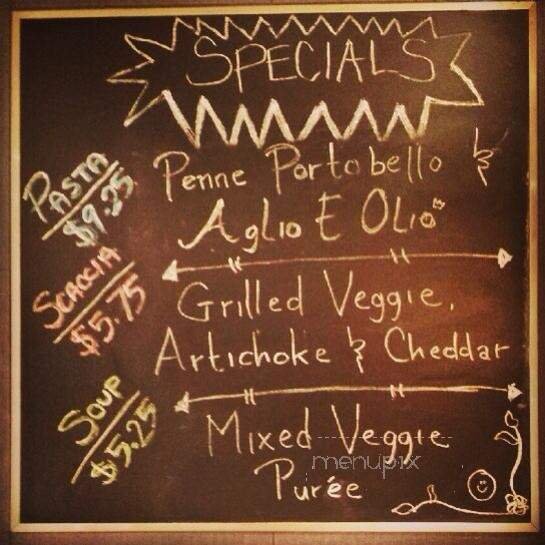 SPECIALS
PASTA
$9.25
Penne Portobello &
Aglio E Olio
SCACCIA
$5.75
Grilled Veggie,
Artichoke & Cheddar
SOUP
$5.25
Mixed Veggie
Purée
menupix